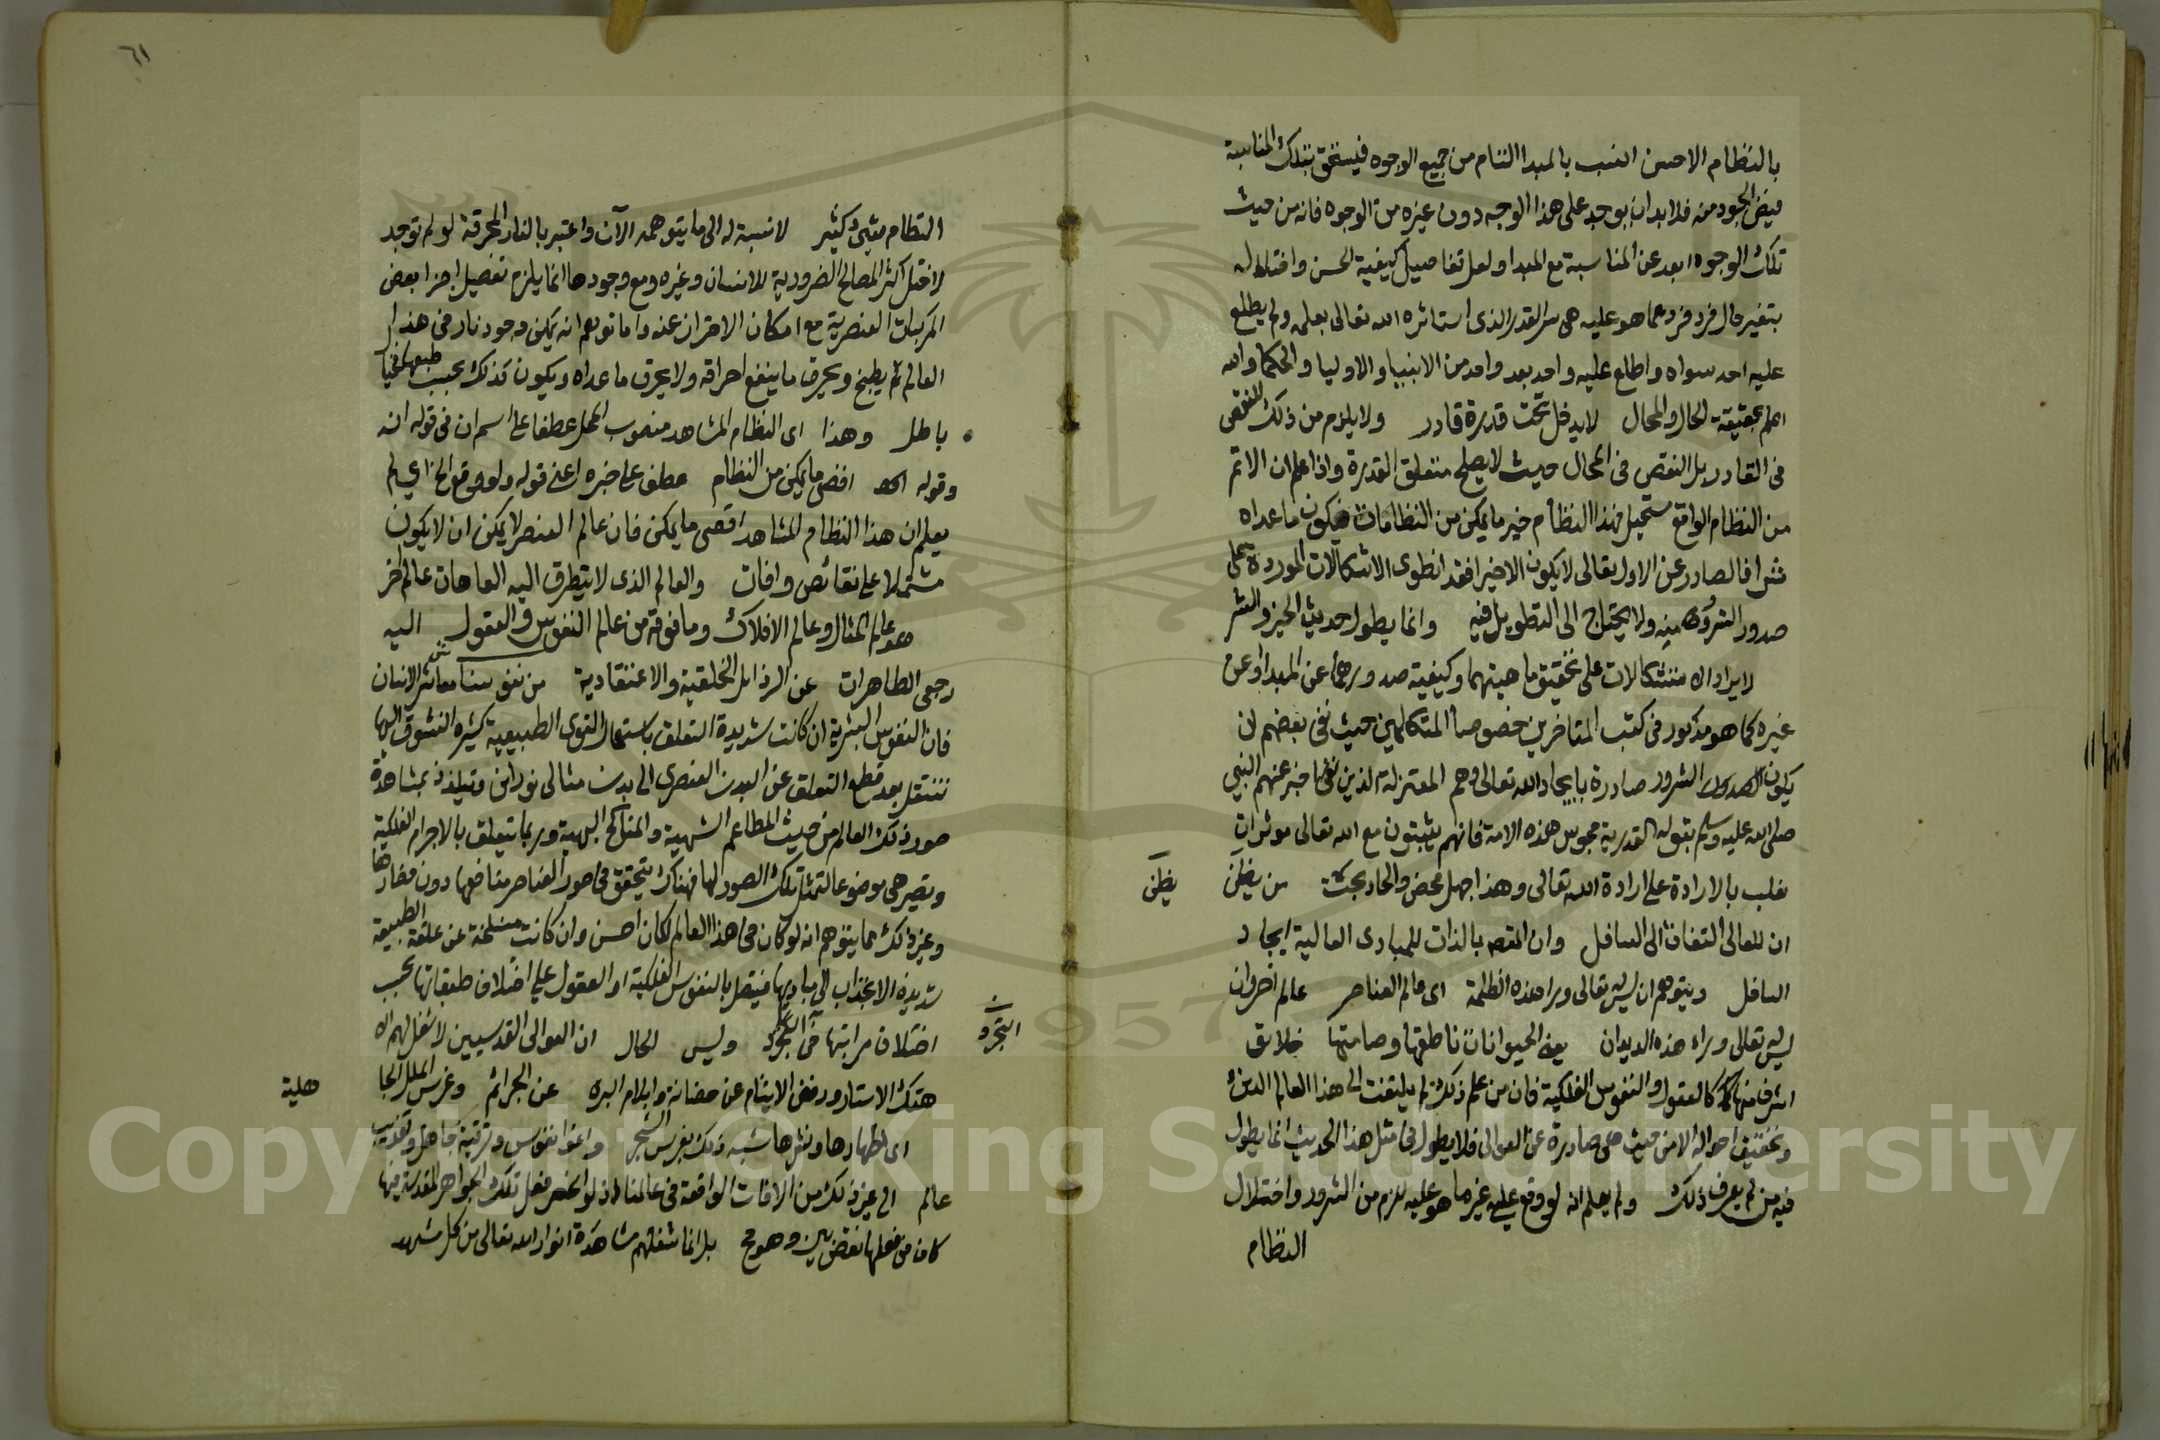 بالنظام الاحسن انسب بالمبدا التام من جميع الوجوه فيستحق بتلك المناسبة
فيض الجود منه فلابد ان يوجد على هذا الوجه دون غيره من الوجوه فانه من حيث
تلك الوجوه ابعد عن المناسبة مع المبدا ولعل تفاصيل كيفية الحسن واختلاله
بتغير حال فرد فرد عما هو عليه هى سر القدر الذى استاثره الله تعالى بعلمه ولم يطلع
عليه احد سواه واطلع عليه واحد بعد واحد من الانبيا والاوليا والحكما والله
اعلم بحقيقة الحال والمحال لايدخل تحت قدرة قادر ولا يلزم من ذلك النقص
فى القادر بل النقص فى المحال حيث لا يصلح متعلق القدرة واذا علم ان الاتم
من النظام الواقع مستحيل فهذا النظام خير ما يمكن من النظامات فيكون ما عداه
شرا فالصادر عن الاول تعالى لايكون الا خيرا فقد انطوى الاشكالات الموردة على
صدور الشرور منه ولا يحتاج الى التطويل فيه وانما يطول حديث الخير والشر
لايراد الاستشكالات على تحقيق ماهيتهما وكيفية صدورهما عن المبدا وعن
غيره كما هو مذكور فى كتب المتاخرين خصوصا المتكلمين حيث نفى بعضهم ان
يكون الشرور صادرة بايجاد الله تعالى وهم المعتزلة الذين اخبر عنهم النبى
صلى الله عليه وسلم بقوله القدرية مجوس هذه الامة فانهم يثبتون مع الله تعالى موثرات
تغلب بالارادة على ارادة الله تعالى وهذا جهل محض والحاد بحت من يظن
يظن
ان للعالى التفاتا الى السافل وان المقصد بالذات للمبادى العالية ايجاد
السافل ويتوهم ان ليس لله تعالى وراء هذه الظلمة اى عالم العناصر عالم اخر وان
ليس لله تعالى وراء هذه الديدان يعنى الحيوانات ناطقها وصامتها خلائق
اشرف منها كالعقول والنفوس الفلكية فان من علم ذلك لم يلتفت الى هذا العالم الدنى
وتحقيق احواله الا من حيث هى صادرة عن العوالى فلا يطول فى مثل هذا الحديث انما يطول
فيه من لم يعرف ذلك ولم يعلم انه لو وقع على غير ما هو عليه للزم من الشرور واختلال
النظام
٦١
النظام شىء كثير لا نسبة له الى ما يتوهمه الآن واعتبر بالنار المحرقة لو لم توجد
لاختل اكثر المصالح الضرورية للانسان وغيره ومع وجودها انما يلزم تفصيل اجزا بعض
المركبات العنصرية مع امكان الاحتراز عنه واما توهم انه يمكن وجود نار فى هذا
العالم ثم يطبخ ويحرق ما ينفع احراقه ولا يحرق ما عداه ويكون كذلك بحسب طبعها
باطل وهذا اى النظام المشاهد منصوب المحل عطفا على اسم ان فى قوله انه
وقوله اقصى ما يمكن من النظام عطف على خبره اعنى قوله ولو وقع الخ اي لم
يعلم ان هذا النظام المشاهد اقصى ما يمكن فان عالم العنصر لا يمكن ان لايكون
مشتملا على نقائص وافات والعالم الذى لا يتطرق اليه العاهات عالم اخر
هو عالم المثال وعالم الافلاك وما فوقه من عالم النفوس والعقول اليه
رجعى الطاهرات عن الرذائل الخلقية والاعتقادية من نفوسنا معاشر الانسان
فان النفوس البشرية ان كانت شديدة التعلق باستعمال القوى الطبيعية كثيره الشوق اليها
تنتقل بعد قطع التعلق عن البدن العنصرى الى بدن مثالى نورانى وتلتذ بمشاهدة
صور ذلك العالم من حيث المطاعم الشهية والمناكح البهية وربما يتعلق بالاجرام الفلكية
وتصير هى موضوعا لتمثل تلك الصور لها فهناك يتحقق فى صور العناصر منافعها دون مضارها
وغير ذلك مما يتوهم انه لو كان فى هذا العالم لكان احسن وان كانت منسلخة عن علقة الطبيعة
شديدة الانجذاب الى مباديها فيتصل بالنفوس الفلكية او العقول على اختلاف طبقاتها بحسب
اختلاف مراتبها فى التجرد وليس الحال ان العوالى القدسيين لا شغل لهم الا
التجرد
هتك الاستار ورفض الايتام عن حضانة وايلام البرء عن الجرائم وغرس الملل الجا
هلية
اى اظهارها ونشرها شبه ذلك بغرس الشجر واغوا نفوس وتربية جاهل وتعذيب
عالم الى غير ذلك من الافات الواقعة فى عالمنا اذ لو انحصر فعل تلك الجواهر المقدسة فيها
كان من فعلها نقص بين وهو مح بل انما شغلهم مشاهدة انوار الله تعالى من كل مشهد
Copyright © King Saud University
1957